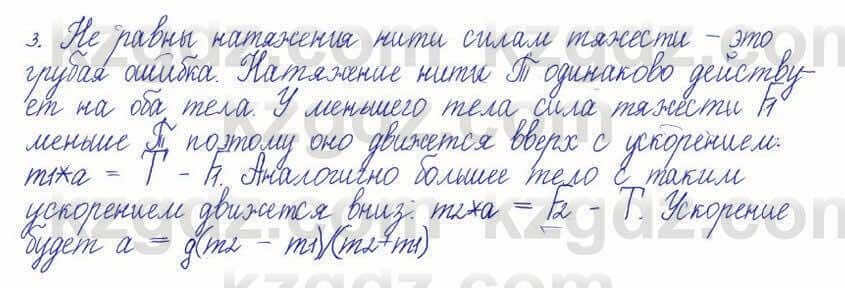 3. Не равны натяжения нити силам тяжести – это
грубая ошибка. Натяжение нити T одинаково действу-
ет на оба тела. У меньшего тела сила тяжести F1
меньше T, поэтому оно движется вверх с ускорением:
m1*a = T - F1. Аналогично большее тело с таким
ускорением движется вниз: m2*a = F2 - T. Ускорение
будет a = g(m2 - m1)/(m2+m1)
kzgdz.com